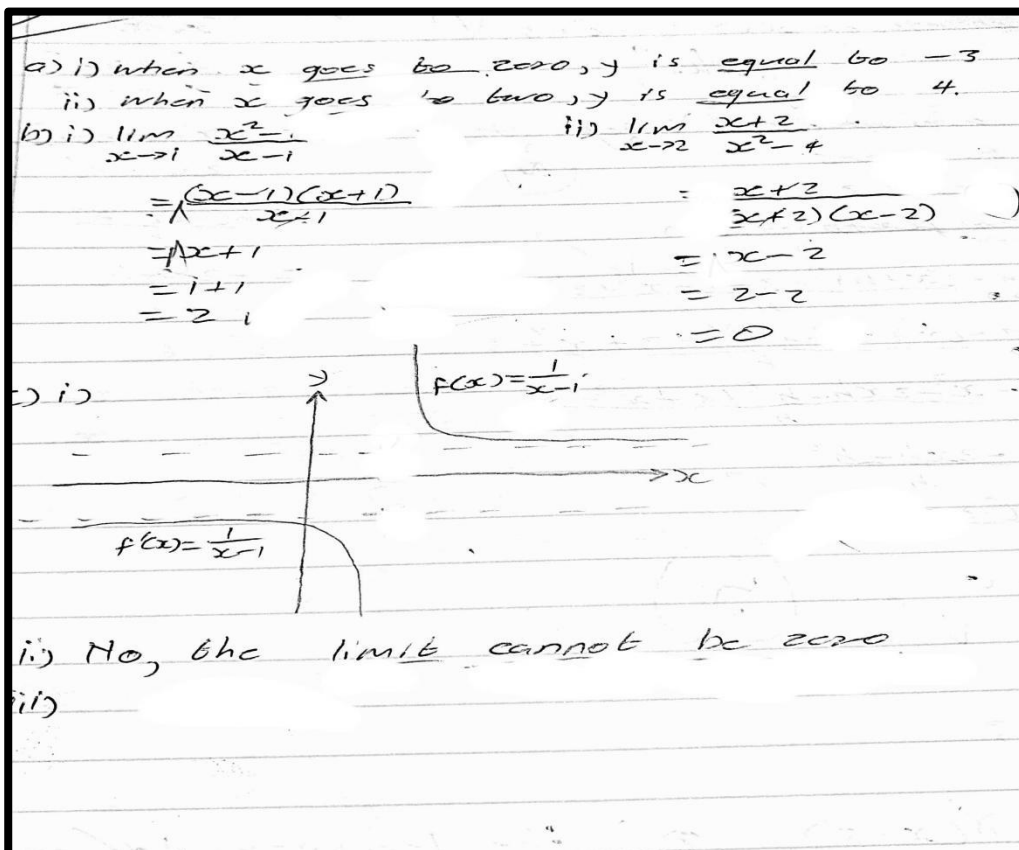 a) i) when x goes to zero, y is equal to -3
ii) when x goes to two, y is equal to 4.
b) i) lim x→1 (x² - 1)/(x - 1)
ii) lim x→2 (x + 2)/(x² - 4)
= (x-1)(x+1)/(x-1)
= (x+2)/((x+2)(x-2))
= x+1
= x-2
= 1+1
= 2-2
= 2
= 0
c) i)
y
f(x) = 1/(x-1)
x
f(x) = 1/(x-1)
ii) No, the limit cannot be zero
iii)